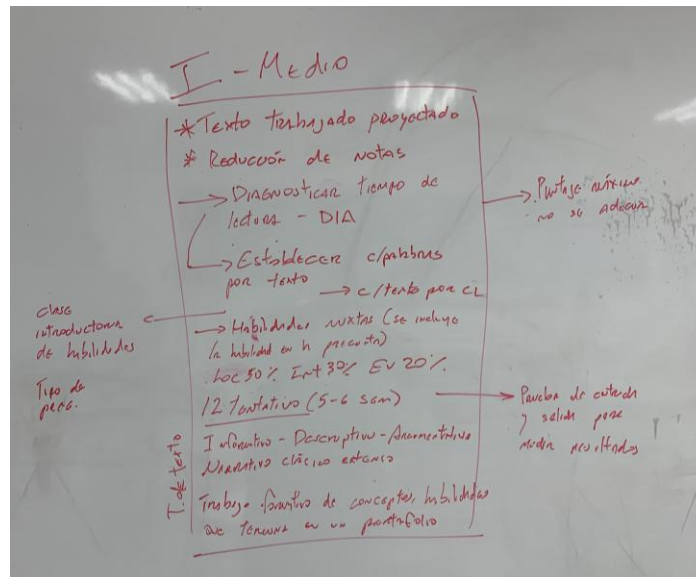 I - Medio
* Texto trabajado proyectado
* Reducción de notas
→ Diagnosticar tiempo de
lectura - DIA
→ Establecer c/palabras
por texto
→ c/texto por CL
→ Habilidades mixtas (se incluye
la habilidad en la pregunta)
Loc 50% Int 30% Ev 20%
12 Tentativo (5-6 sem)
T. de texto
Informativo - Descriptivo - Argumentativo
Narrativo clásico extenso
Trabajo formativo de conceptos, habilidades
que termina en un portafolio
Clase
introductoria
de habilidades
Tipo de
preg.
→ Puntaje máximo
no se adecua
→ Prueba de entrada
y salida para
medir resultados